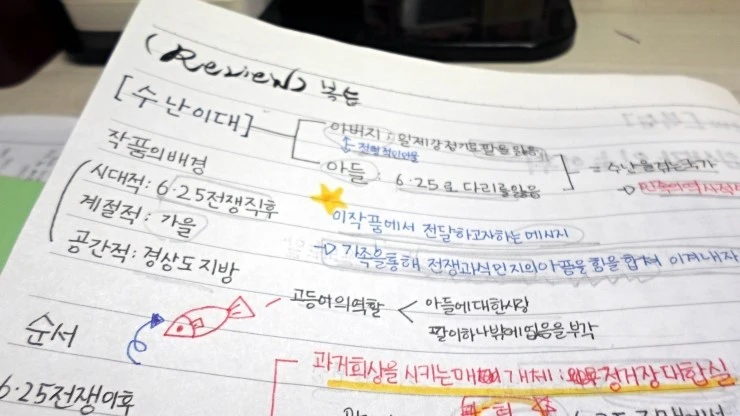 (Review) 복습
[수난이대]
아버지 : 일제강점기로 팔을 잃음
전형적인 인물
아들 : 6·25로 다리를 잃음
= 수난을 겪는
작품의 배경
시대적: 6·25전쟁직후
계절적: 가을
공간적: 경상도 지방
이 작품에서 전달하고자하는 메시지
→ 가족을 통해 전쟁과 식민지의 아픔을 힘을 합쳐 이겨내자
고등어의 역할
아들에 대한 사랑
팔이 하나밖에 없음을 부각
순서
과거회상을 시키는 매개체 : 정거장 대합실
6·25전쟁이후